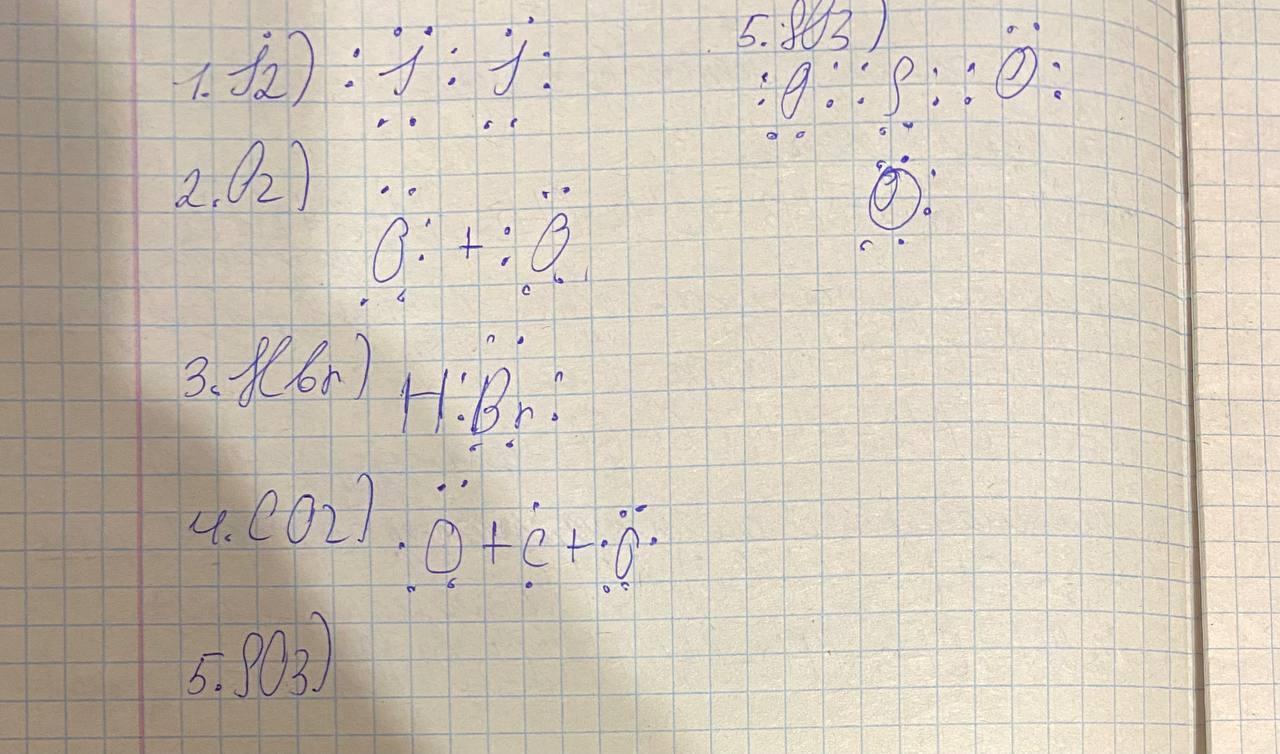 1. J2) : J : J :
2. O2) O: + :O
3. HBr) H:Br:
4. CO2) ·O + C + ·O·
5. SO3)
5. SO3)
:O: :S: :O:
O: